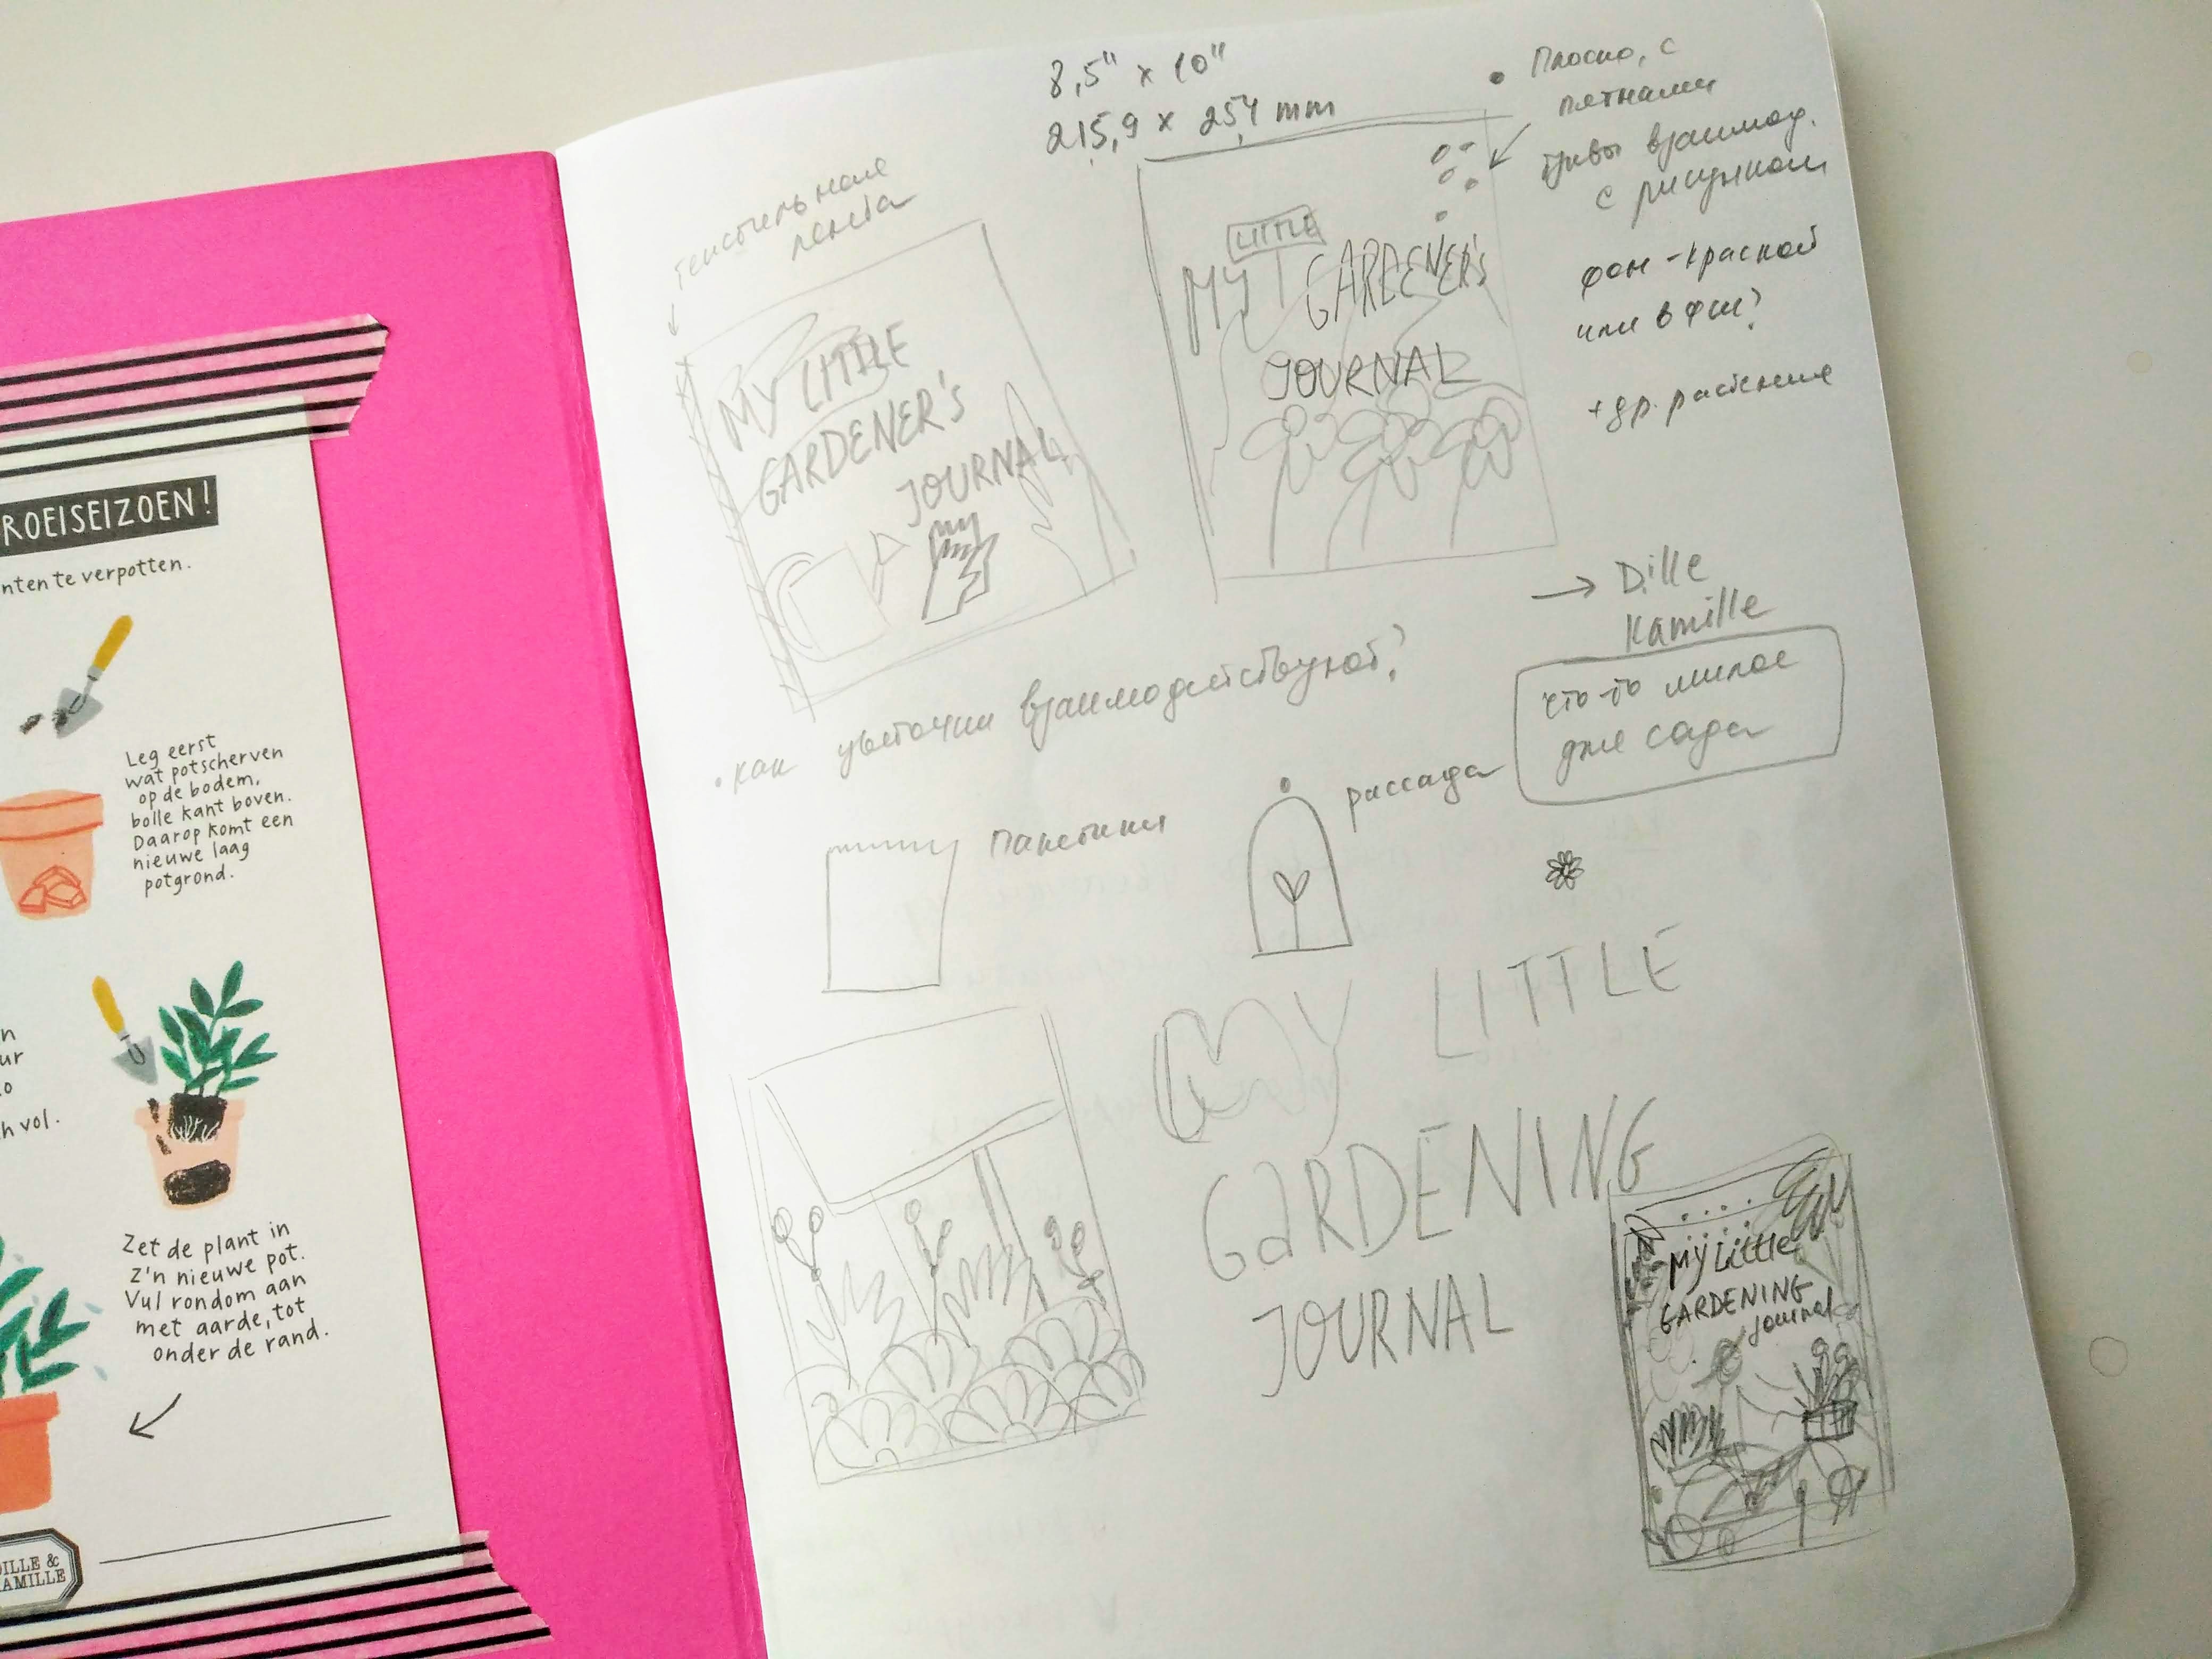 ROEISEIZOEN!
nten te verpotten.
Leg eerst
wat potscherven
op de bodem,
bolle kant boven.
Daarop komt een
nieuwe laag
potgrond.
n
ur
o
h vol.
Zet de plant in
z'n nieuwe pot.
Vul rondom aan
met aarde, tot
onder de rand.
DILLE &
KAMILLE
8,5" x 10"
215,9 x 254 mm
текстильная
лента
MY LITTLE
GARDENER'S
JOURNAL
LITTLE
MY GARDENER'S
JOURNAL
• Плоско, с
пятнами
буквы взаимод.
с рисунком
фон - краской
или в Фш?
+ др. растения
→ Dille
Kamille
что-то милое
для сада
• как цветочки взаимодействуют?
Пакетики
рассада
MY LITTLE
GARDENING
JOURNAL
My Little
GARDENING
Journal